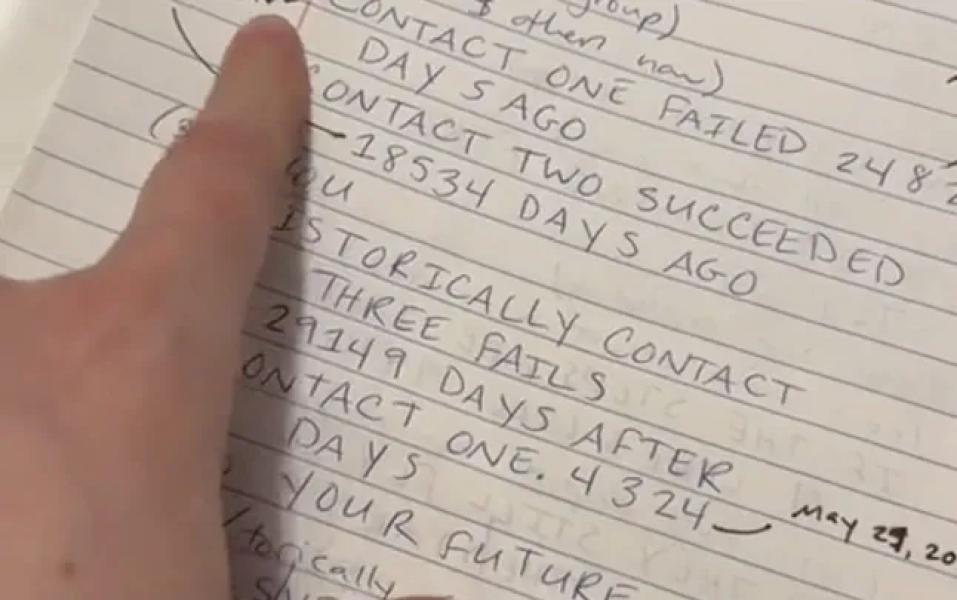 group)
& then now)
CONTACT ONE FAILED 2482
DAYS AGO
CONTACT TWO SUCCEEDED
18534 DAYS AGO
ISTORICALLY CONTACT
THREE FAILS
29149 DAYS AFTER
ONTACT ONE. 4324
May 29, 20
DAYS
YOUR FUTURE
torically